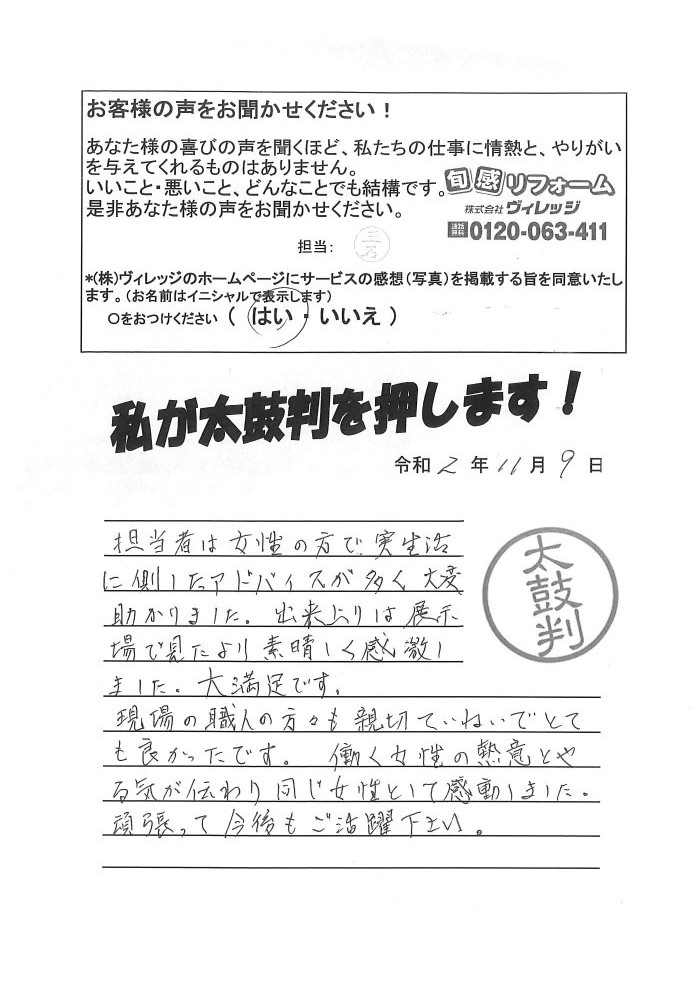 お客様の声をお聞かせください！
あなた様の喜びの声を聞くほど、私たちの仕事に情熱と、やりがい
を与えてくれるものはありません。
いいこと・悪いこと、どんなことでも結構です。
是非あなた様の声をお聞かせください。
旬感リフォーム
株式会社ヴィレッジ
通話無料0120-063-411
担当：
*(株)ヴィレッジのホームページにサービスの感想（写真）を掲載する旨を同意いたし
ます。（お名前はイニシャルで表示します）
〇をおつけください（ はい ・ いいえ ）
私が太鼓判を押します！
令和 2 年 11 月 9 日
担当者は女性の方で実生活
に側したアドバイスが多く大変
助かりました。出来上りは展示
場で見たより素晴しく感激し
ました。大満足です。
太鼓判
現場の職人の方々も親切ていねいでとて
も良かったです。 働く女性の熱意とや
る気が伝わり同じ女性として感動しました。
頑張って今後もご活躍下さい。